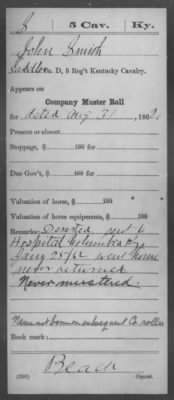 S 5 Cav. Ky.
John Smith
Saddler, Co. D, 5 Reg't Kentucky Cavalry.
Appears on
Company Muster Roll
for dated Aug 31, 186
Present or absent
Stoppage, $ 100 for
Due Gov't, $ 100 for
Valuation of horse, $ 100
Valuation of horse equipments, $ 100
Remarks: Deserted sent to
Hospital Columbia Ky
Jany 25/62 went home
never returned.
Never mustered.
Name not borne on subsequent Co rolls
Book mark:
Beach
(358) Copyist.